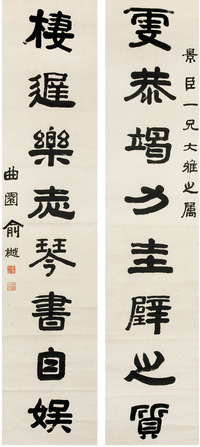 景臣一兄大雅之属
虔恭竭力圭璧之質
棲遲樂志琴書自娛
曲園俞樾